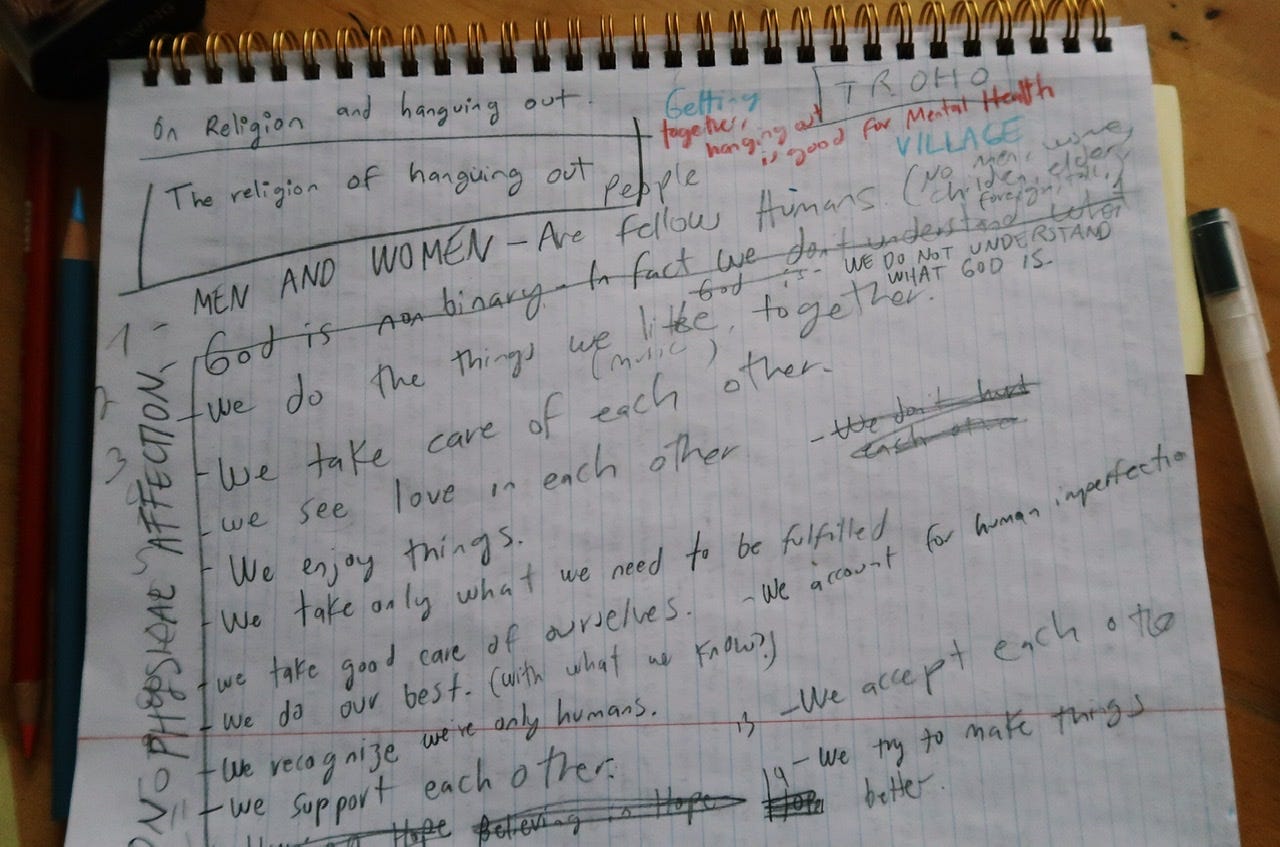 On Religion and hanguing out.
TROHO
Getting
together,
hanging out
is good for Mental Health
VILLAGE
The religion of hanguing out
people
MEN AND WOMEN - Are fellow Humans. (No men, women,
children, elder,
foreign, tall,
1 -
God is non binary - In fact we don't understand what
God is - WE DO NOT UNDERSTAND
WHAT GOD IS.
2
- We do the things we like, together.
(music)
3
- We take care of each other.
- We don't hurt
each other
- we see love in each other
- We enjoy things.
- We take only what we need to be fulfilled
- we take good care of ourselves.
- We account for human imperfectio
- We do our best. (with what we know?)
- We recognize we're only humans.
13 - We accept each othe
- We support each other.
14 - We try to make things
better.
Hope
Believing in Hope
Hope
NO PHYSICAL AFFECTION